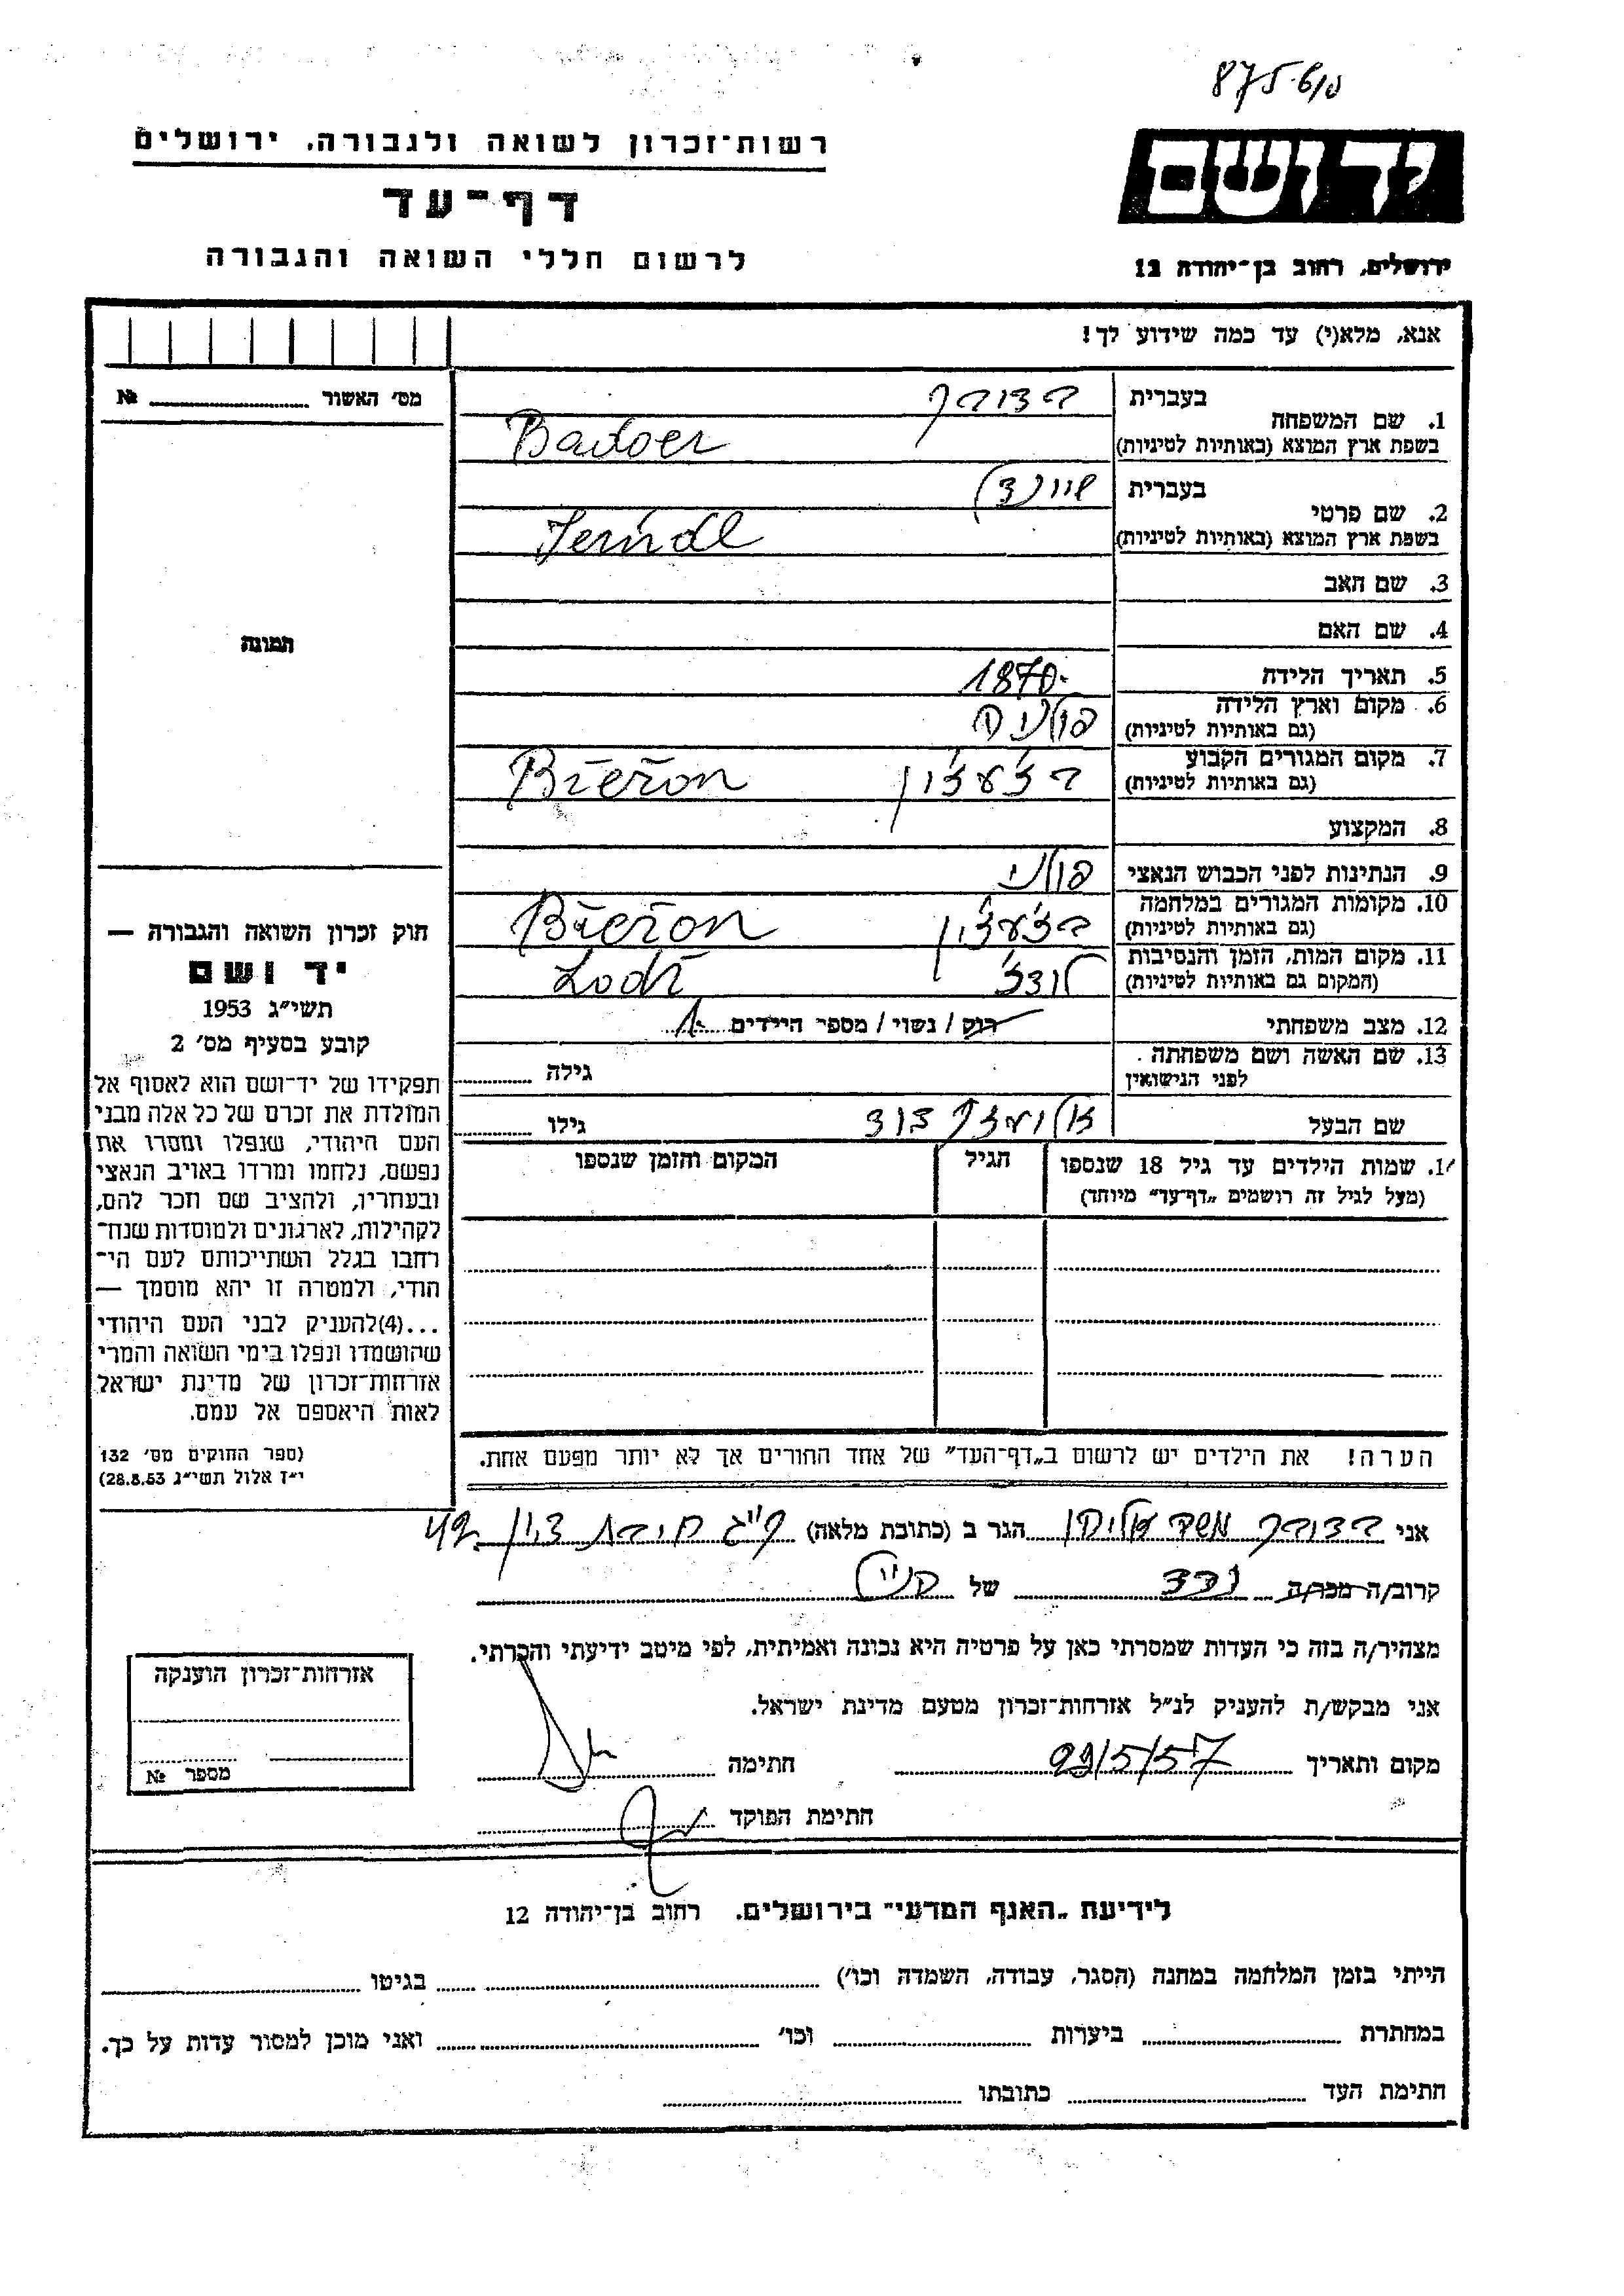 875-6/ם
רשות־זכרון לשואה ולגבורה, ירושלים
דף־עד
לרשום חללי השואה והגבורה
יד ושם
ירושלים, רחוב בן־יהודה 12
אנא, מלא(י) עד כמה שידוע לך!
מס׳ האשור № 
תמונה
חוק זכרון השואה והגבורה —
יד ושם
תשי״ג 1953
קובע בסעיף מס׳ 2
תפקידו של יד־ושם הוא לאסוף אל
המולדת את זכרם של כל אלה מבני
העם היהודי, שנפלו ומסרו את
נפשם, נלחמו ומרדו באויב הנאצי
ובעוזריו, ולהציב שם וזכר להם,
לקהילות, לארגונים ולמוסדות שנח־
רחבו בגלל השתייכותם לעם הי־
הודי, ולמטרה זו יהא מוסמך —
...(4)להעניק לבני העם היהודי
שהושמדו ונפלו בימי השואה והמרי
אזרחות־זכרון של מדינת ישראל
לאות היאספם אל עמם.
(ספר החוקים מס׳ 132
י״ז אלול תשי״ג 28.8.53)
בעברית
1. שם המשפחה
בשפת ארץ המוצא (באותיות לטיניות) Badoer
בעברית
2. שם פרטי
בשפת ארץ המוצא (באותיות לטיניות)
3. שם האב
4. שם האם
5. תאריך הלידה 1870-
6. מקום וארץ הלידה
(גם באותיות לטיניות) פולניה
7. מקום המגורים הקבוע
(גם באותיות לטיניות) בז׳עז׳ון Biežon
8. המקצוע
9. הנתינות לפני הכבוש הנאצי פולני
10. מקומות המגורים במלחמה
(גם באותיות לטיניות) בז׳עז׳ון Biežon
11. מקום המות, הזמן והנסיבות
(המקום גם באותיות לטיניות) לודז׳ Lodž
12. מצב משפחתי רוק/נשוי/מספר הילדים
13. שם האשה ושם משפחתה
לפני הנישואין גילה
שם הבעל דוד גילו
14. שמות הילדים עד גיל 18 שנספו הגיל המקום והזמן שנספו
(מעל לגיל זה רושמים „דף־עד״ מיוחד)
הערה! את הילדים יש לרשום ב„דף־העד״ של אחד ההורים אך לא יותר מפעם אחת.
אני משה הגר ב (כתובת מלאה) חיבת ציון 42
קרוב/ה מכר/ה נכד של
מצהיר/ה בזה כי העדות שמסרתי כאן על פרטיה היא נכונה ואמיתית, לפי מיטב ידיעתי והכרתי.
אני מבקש/ת להעניק לנ״ל אזרחות־זכרון מטעם מדינת ישראל.
מקום ותאריך 29/5/57 חתימה
חתימת הפוקד
אזרחות־זכרון הוענקה
מספר №
לידיעת „האגף המדעי״ בירושלים. רחוב בן־יהודה 12
הייתי בזמן המלחמה במחנה (הסגר, עבודה, השמדה וכו׳) בגיטו
במחתרת ביערות וכו׳ ואני מוכן למסור עדות על כך.
חתימת העד כתובתו